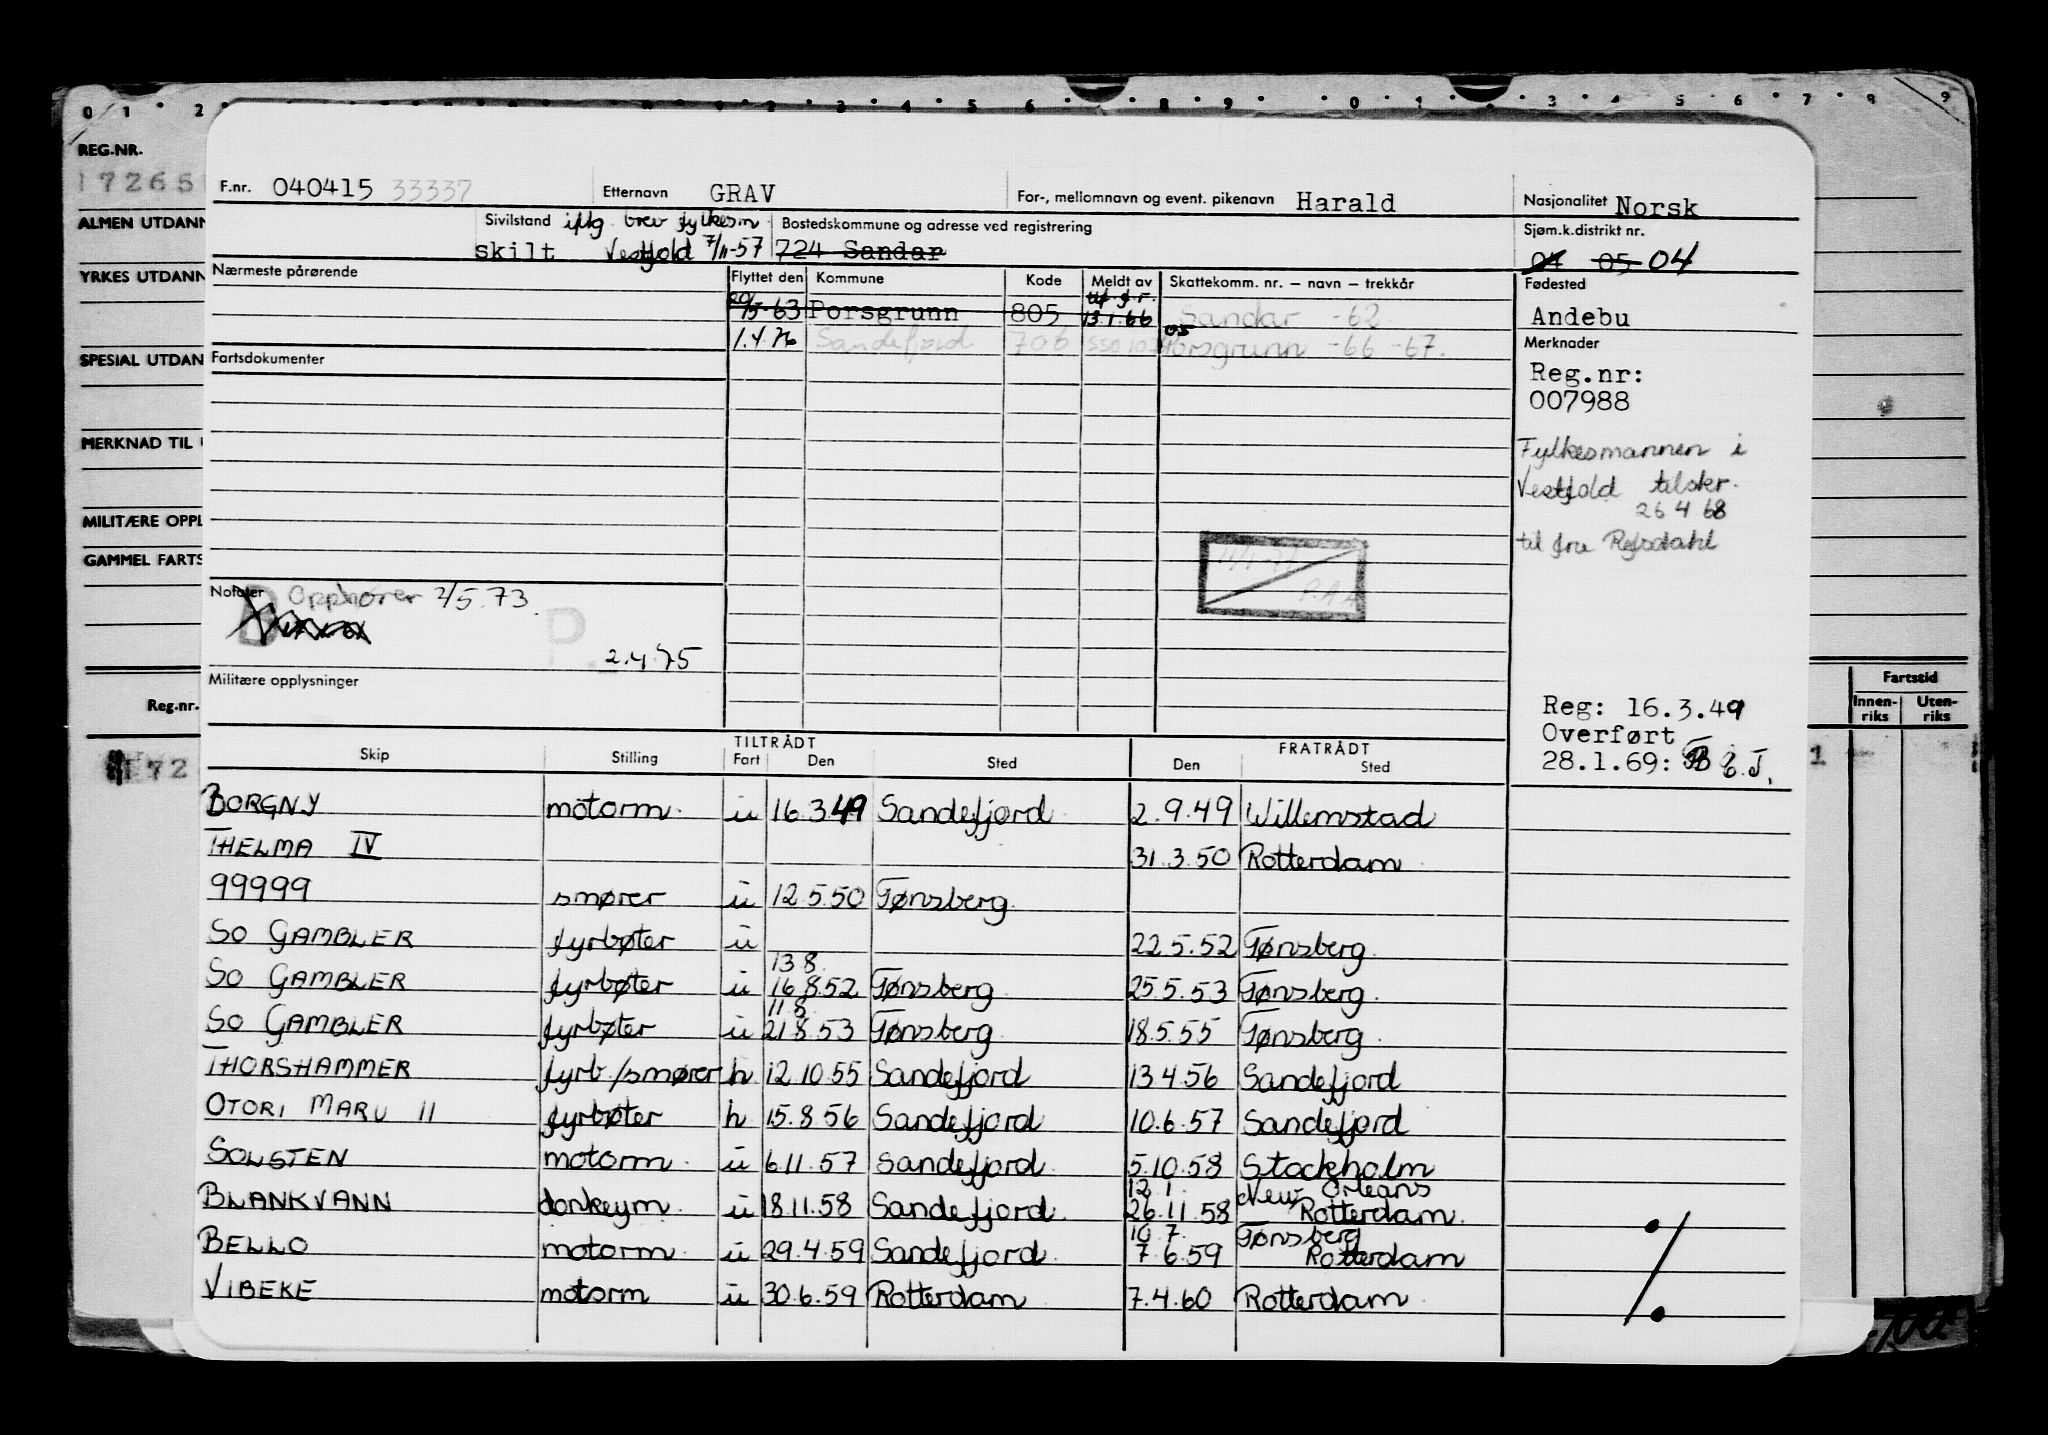 0 1 2 2 3 4 5 6 8 9 0 1 3 4 5 6 7 8 9
REG.NR.
17265
ALMEN UTDANN
YRKES UTDANN
SPESIAL UTDAN
MERKNAD TIL
MILITÆRE OPPL
GAMMEL FARTS
Reg.nr.
F.nr. 040415 33337 Etternavn GRAV For-, mellomnavn og event. pikenavn Harald Nasjonalitet Norsk
Sivilstand iflg. brev fylkesm Bostedskommune og adresse ved registrering Sjøm.k.distrikt nr.
skilt Vestfold 7/11-57 724 Sandar 04 05 04
Nærmeste pårørende Flyttet den Kommune Kode Meldt av Skattekomm. nr. – navn – trekkår Fødested
63 Porsgrunn 805 13.1.66 Sandar -62. Andebu
1.4.76 Sandefjord 706 05 Porsgrunn -66 -67.
Fartsdokumenter Merknader
Reg.nr:
007988
Fylkesmannen i
Vestfold tilskr.
26 4 68
til fru Refsdahl
Notater Opphører 2/5.73.
P. 2.4.75
P.A.A
Militære opplysninger
Reg: 16.3.49
Overført
28.1.69: E.J.
Fartstid
Innen-riks Uten-riks
TILTRÅDT FRATRÅDT
Skip Stilling Fart Den Sted Den Sted
BORGNY motorm. u 16.3.49 Sandefjord 2.9.49 Willemstad
THELMA IV 31.3.50 Rotterdam
99999 smører u 12.5.50 Tønsberg
SO GAMBLER fyrbøter u 22.5.52 Tønsberg
13 8
SO GAMBLER fyrbøter u 16.8.52 Tønsberg 25.5.53 Tønsberg
11.8.
SO GAMBLER fyrbøter u 21.8.53 Tønsberg 18.5.55 Tønsberg
THORSHAMMER fyrb./smører h 12.10.55 Sandefjord 13.4.56 Sandefjord
OTORI MARU 11 fyrbøter h 15.8.56 Sandefjord 10.6.57 Sandefjord
SOLSTEN motorm. u 6.11.57 Sandefjord 5.10.58 Stockholm
12.1. New Orleans
BLANKVANN donkeym u 18.11.58 Sandefjord 26.11.58 Rotterdam
10 7. Tønsberg
BELLO motorm. u 29.4.59 Sandefjord 7.6.59 Rotterdam
VIBEKE motorm u 30.6.59 Rotterdam 7.4.60 Rotterdam